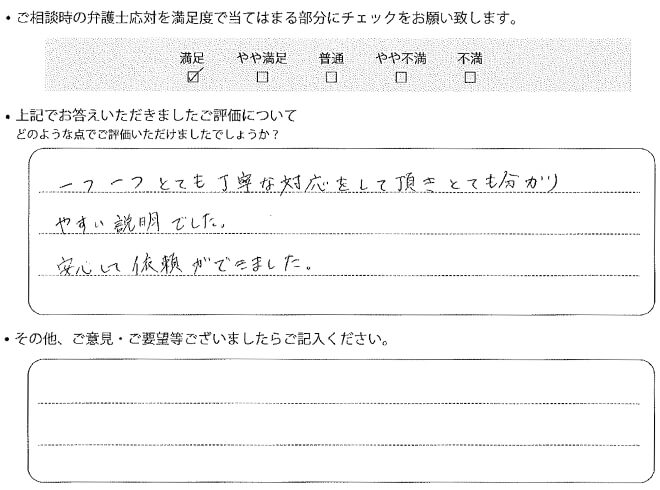 ・ご相談時の弁護士応対を満足度で当てはまる部分にチェックをお願い致します。
満足 やや満足 普通 やや不満 不満
☑ ☐ ☐ ☐ ☐
・上記でお答えいただきましたご評価について
どのような点でご評価いただけましたでしょうか？
一つ一つとても丁寧な対応をして頂きとても分かり
やすい説明でした。
安心して依頼ができました。
・その他、ご意見・ご要望等ございましたらご記入ください。